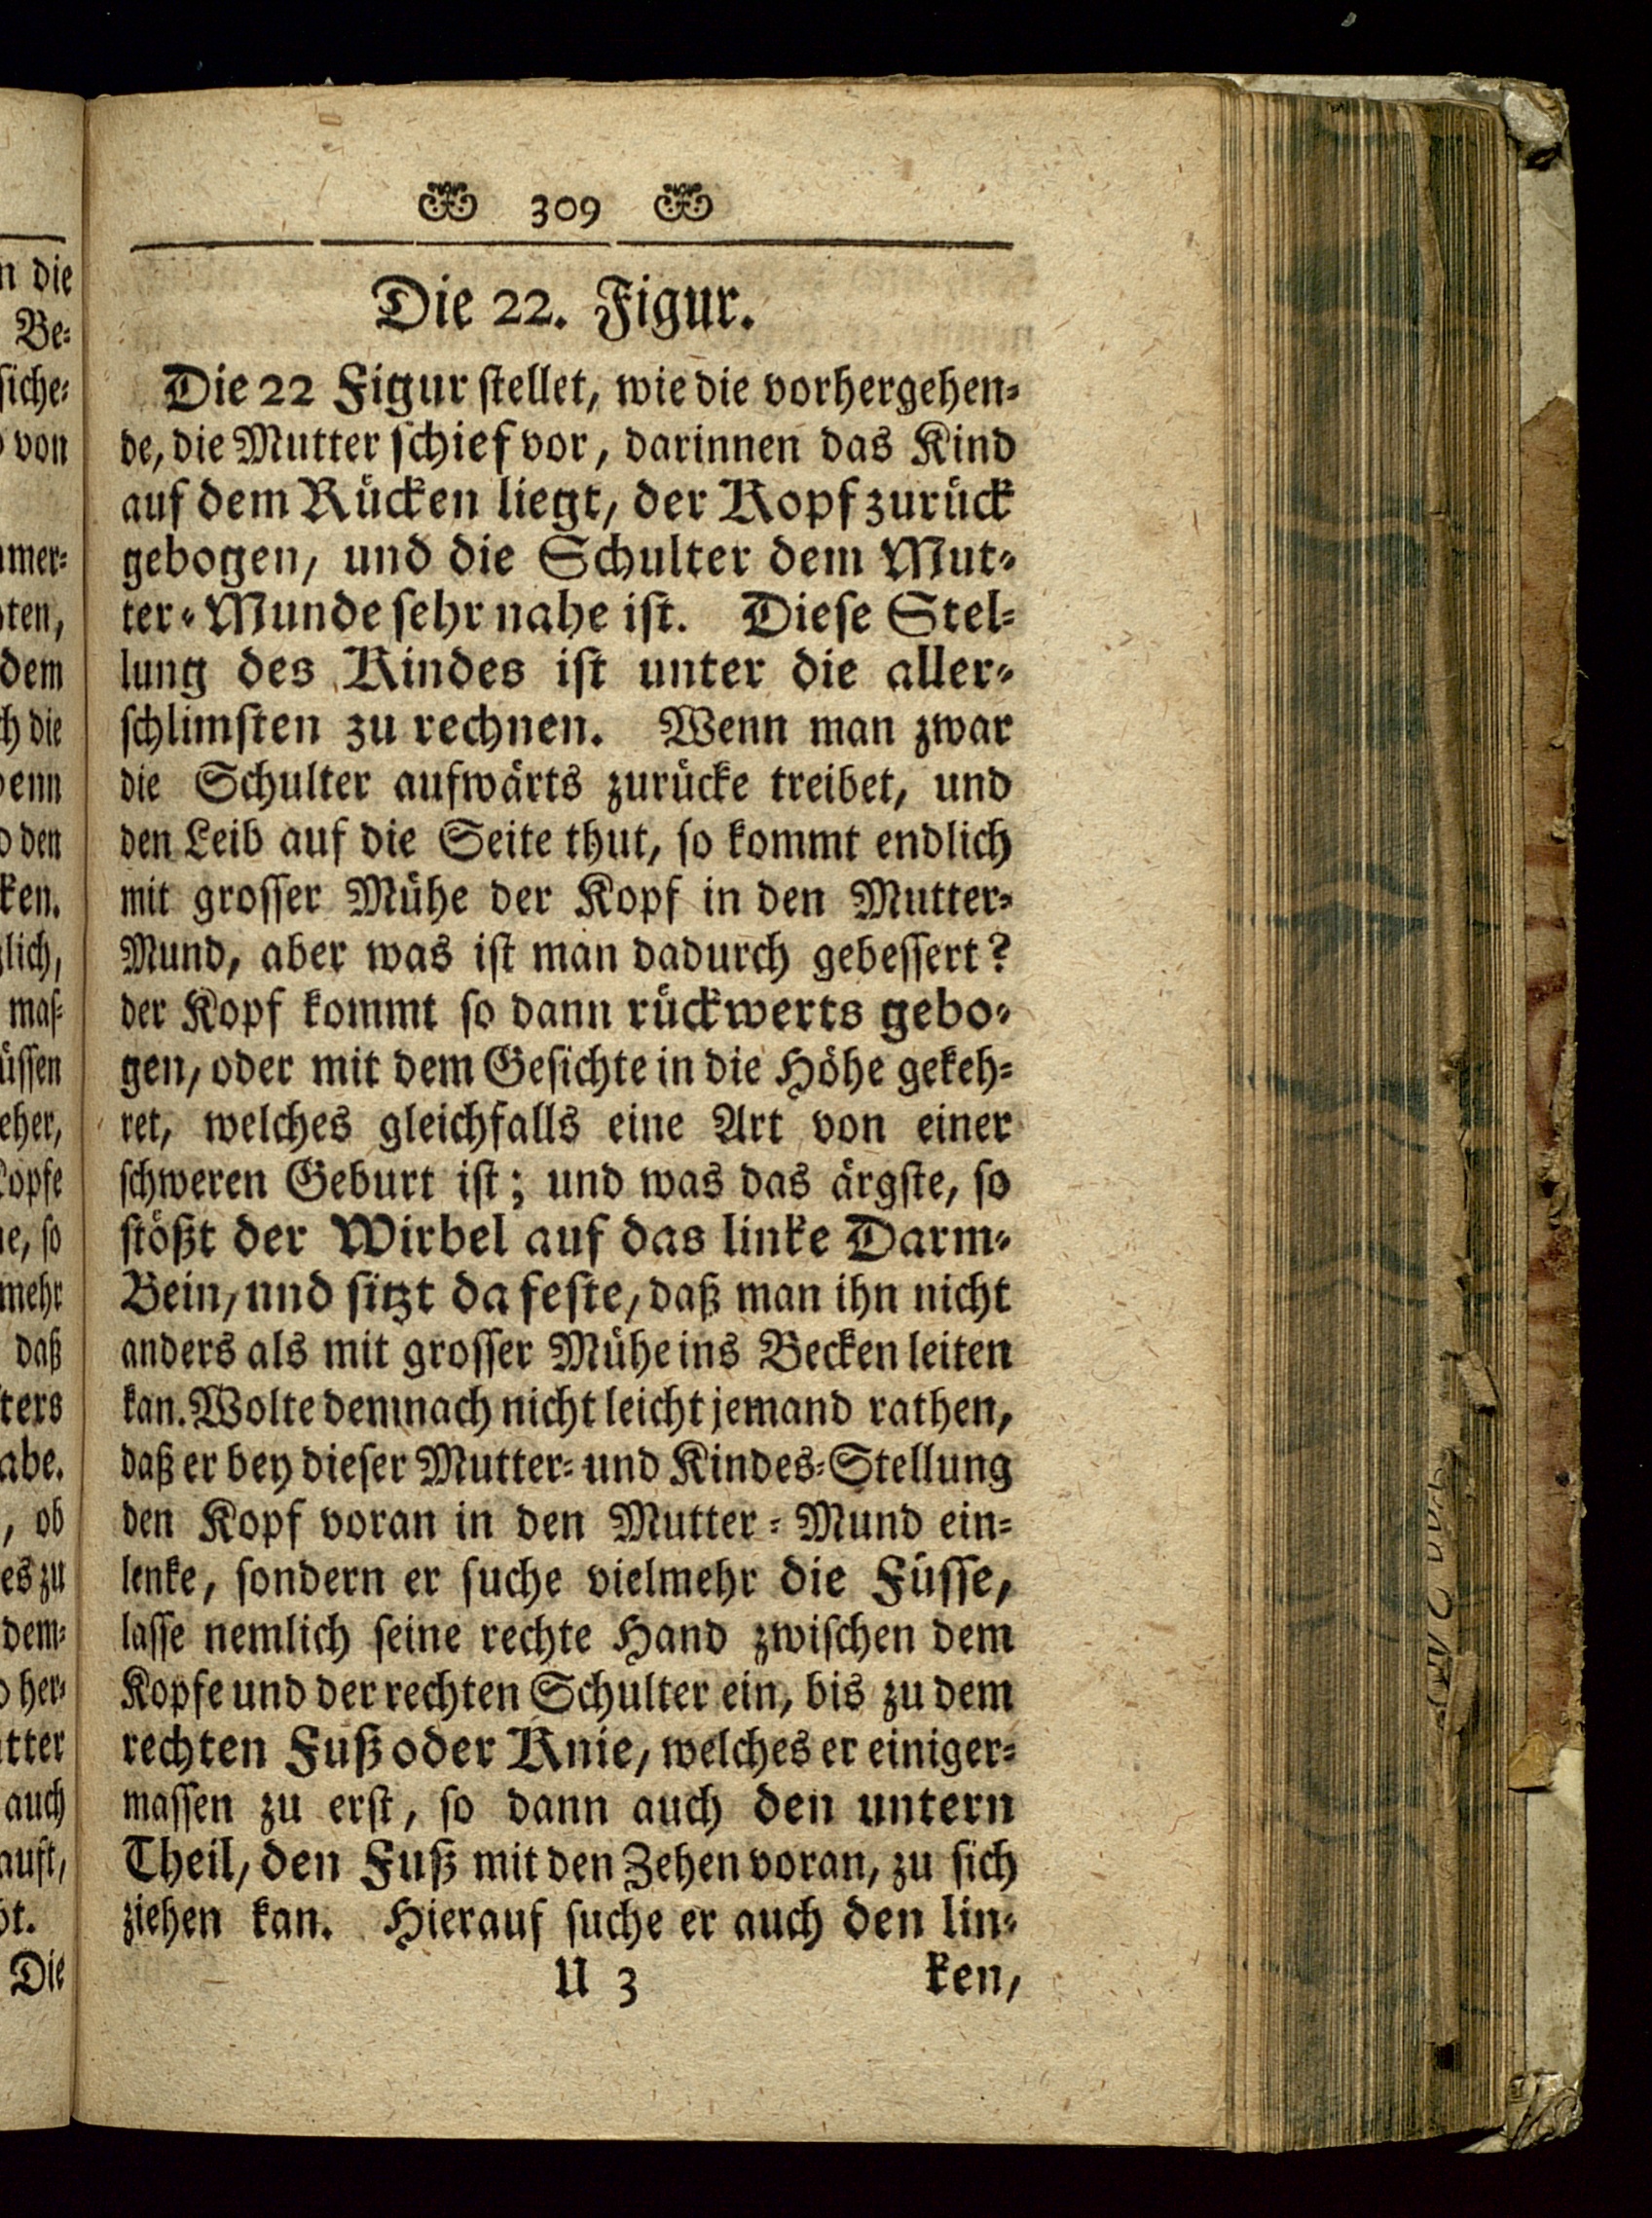 309
Die 22. Figur.
Die 22 Figur stellet, wie die vorhergehen-
de, die Mutter schief vor, darinnen das Kind
auf dem Rücken liegt, der Kopf zurück
gebogen, und die Schulter dem Mut-
ter-Munde sehr nahe ist. Diese Stel-
lung des Kindes ist unter die aller-
schlimsten zu rechnen. Wenn man zwar
die Schulter aufwärts zurücke treibet, und
den Leib auf die Seite thut, so kommt endlich
mit grosser Mühe der Kopf in den Mutter-
Mund, aber was ist man dadurch gebessert?
der Kopf kommt so dann rückwerts gebo-
gen, oder mit dem Gesichte in die Höhe gekeh-
ret, welches gleichfalls eine Art von einer
schweren Geburt ist; und was das ärgste, so
stößt der Wirbel auf das linke Darm-
Bein, und sitzt da feste, daß man ihn nicht
anders als mit grosser Mühe ins Becken leiten
kan. Wolte demnach nicht leicht jemand rathen,
daß er bey dieser Mutter- und Kindes-Stellung
den Kopf voran in den Mutter-Mund ein-
lenke, sondern er suche vielmehr die Füsse,
lasse nemlich seine rechte Hand zwischen dem
Kopfe und der rechten Schulter ein, bis zu dem
rechten Fuß oder Knie, welches er einiger-
massen zu erst, so dann auch den untern
Theil, den Fuß mit den Zehen voran, zu sich
ziehen kan. Hierauf suche er auch den lin-
U 3 ken,